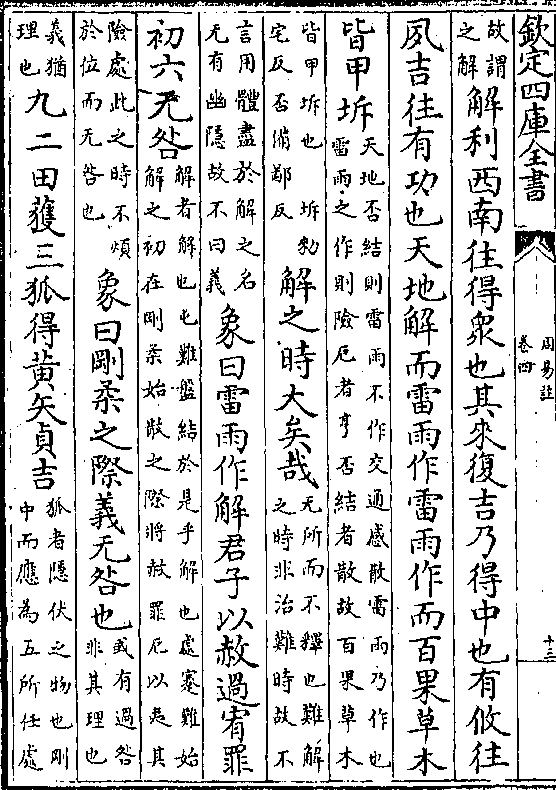 欽定四庫全書
周易註
卷四
十三
故謂
之解
解利西南往得衆也其來復吉乃得中也有攸往
夙吉往有功也天地解而雷雨作雷雨作而百果草木
皆甲坼
天地否結則雷雨不作交通感散雷雨乃作也
雷雨之作則險厄者亨否結者散故百果草木
皆甲坼也 坼勑
宅反否備鄙反
解之時大矣哉
无所而不釋也難解
之時非治難時故不
言用體盡於解之名
无有幽隱故不曰義
象曰雷雨作解君子以赦過宥罪
初六无咎
解者解也屯難盤結於是乎解也處蹇難始
解之初在剛柔始散之際將赦罪厄以夷其
險處此之時不煩
於位而无咎也
象曰剛柔之際義无咎也
或有過咎
非其理也
義猶
理也
九二田獲三狐得黄矢貞吉
狐者隱伏之物也剛
中而應為五所任處